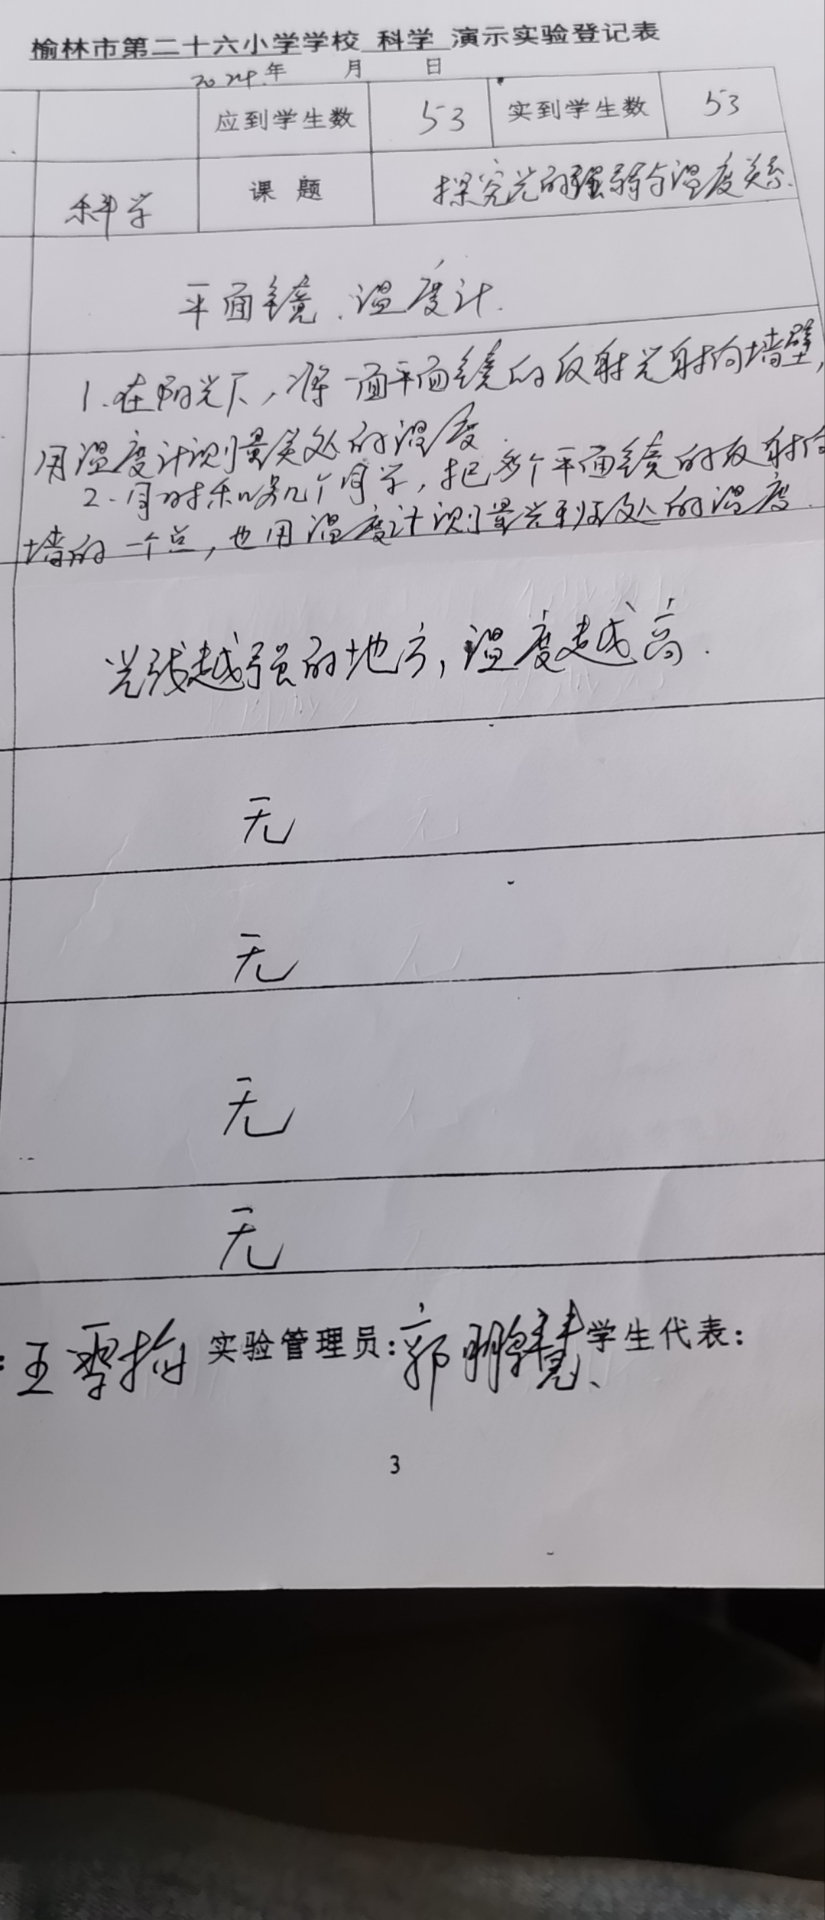 榆林市第二十六小学学校 科学 演示实验登记表
2024年 月 日
应到学生数 53 实到学生数 53
科学 课题 探究光的强弱与温度关系.
平面镜.温度计.
1.在阳光下,将一面平面镜的反射光射向墙壁,
用温度计测量光处的温度.
2.同时和几个同学,把多个平面镜的反射向
墙的一个点,也用温度计测量光到处的温度.
光线越强的地方,温度越高.
无
无
无
无
:王雪梅 实验管理员:郭明慧、学生代表:
3